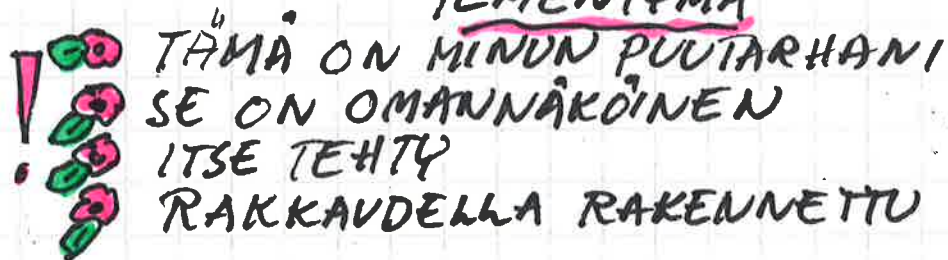 TÄMÄ ON MINUN PUUTARHANI
SE ON OMANNÄKÖINEN
ITSE TEHTY
RAKKAUDELLA RAKENNETTU